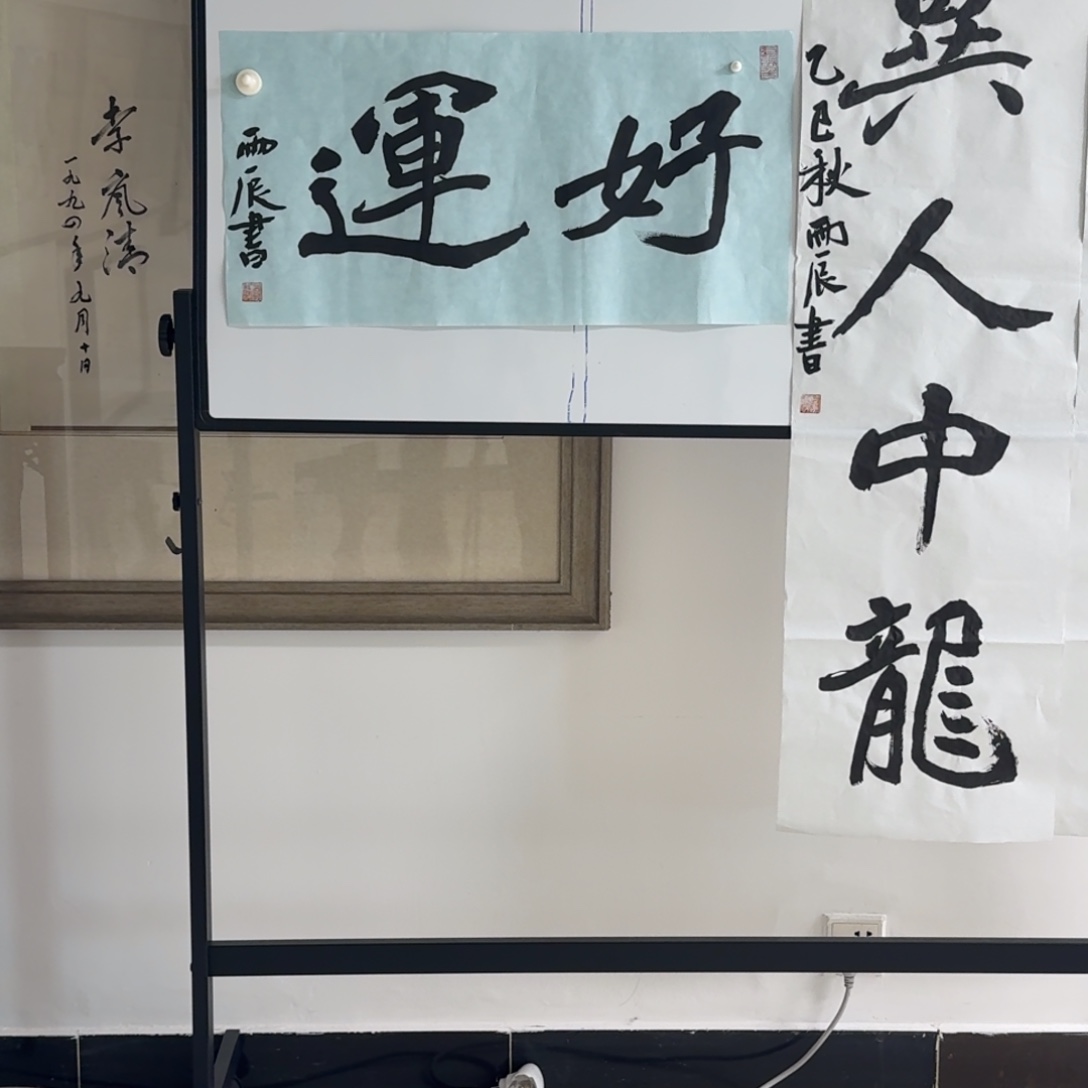 好運
雨辰書
人中龍
乙巳秋雨辰書
李嵐清
一九九四年九月十日